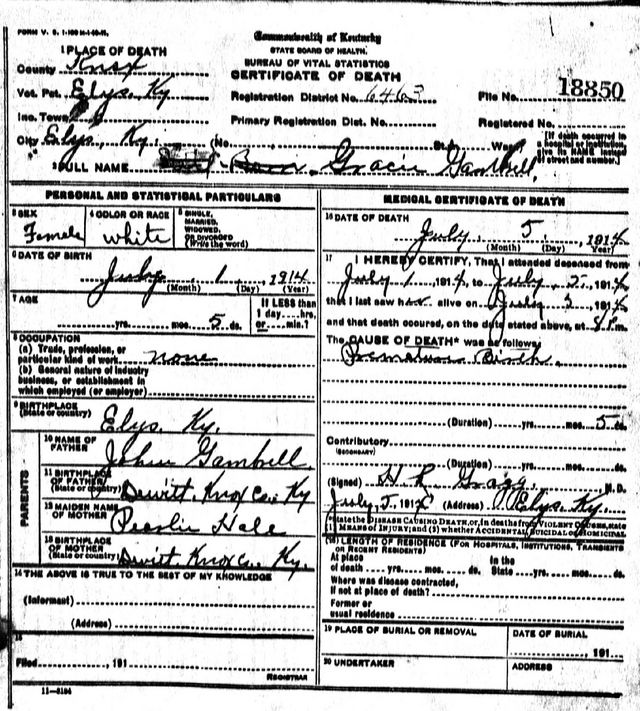 FORM V. S. 1-
Commonwealth of Kentucky
STATE BOARD OF HEALTH
BUREAU OF VITAL STATISTICS
CERTIFICATE OF DEATH
1 PLACE OF DEATH
County Knox
Vot. Pct. Elys, Ky
Inc. Town
City Elys, Ky. (No. St., Ward)
Registration District No. 6463
File No. 18850
Primary Registration Dist. No.
Registered No.
[If death occurred in a hospital or institution, give its NAME instead of street and number.]
2 FULL NAME Gracie Gambrell,
PERSONAL AND STATISTICAL PARTICULARS
3 SEX Female
4 COLOR OR RACE white
5 SINGLE, MARRIED, WIDOWED, OR DIVORCED (Write the word)
6 DATE OF BIRTH July 1, 1914
(Month) (Day) (Year)
7 AGE yrs. mos. 5 ds.
If LESS than 1 day....hrs. or....min.?
8 OCCUPATION
(a) Trade, profession, or particular kind of work none
(b) General nature of industry business, or establishment in which employed (or employer)
9 BIRTHPLACE (State or country) Elys. Ky.
PARENTS
10 NAME OF FATHER John Gambrell
11 BIRTHPLACE OF FATHER (State or country) Dewitt, Knox Co., Ky
12 MAIDEN NAME OF MOTHER Hale
13 BIRTHPLACE OF MOTHER (State or country) Dewitt, Knox Co., Ky.
14 THE ABOVE IS TRUE TO THE BEST OF MY KNOWLEDGE
(Informant)
(Address)
15
Filed 191
REGISTRAR
11-3184
MEDICAL CERTIFICATE OF DEATH
16 DATE OF DEATH July, 5, 1914
(Month) (Day) (Year)
17 I HEREBY CERTIFY, That I attended deceased from
July 1, 1914, to July, 5, 1914
that I last saw her alive on July 5 1914
and that death occured, on the date stated above, at 8 P.m.
The CAUSE OF DEATH* was as follows
Premature Birth
(Duration) yrs. mos. 5 ds.
Contributory
(SECONDARY)
(Duration) yrs. mos. ds.
(Signed) M.D.
July, 5, 1914 (Address) Elys, Ky.
*State the DISEASE CAUSING DEATH, or, in deaths from VIOLENT CAUSES, state
(1) MEANS OF INJURY; and (2) whether ACCIDENTAL, SUICIDAL or HOMICIDAL
18 LENGTH OF RESIDENCE (FOR HOSPITALS, INSTITUTIONS, TRANSIENTS
OR RECENT RESIDENTS)
At place of death yrs. mos. ds. In the State yrs. mos. ds.
Where was disease contracted,
if not at place of death?
Former or
usual residence
19 PLACE OF BURIAL OR REMOVAL
DATE OF BURIAL
191
20 UNDERTAKER
ADDRESS